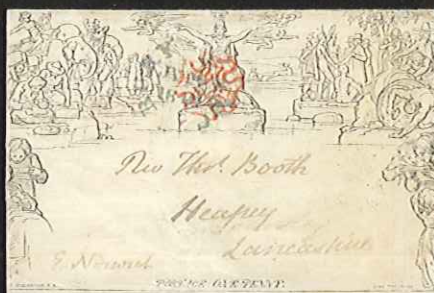 Rev Thos. Booth
Heapey
Lancashire
POSTAGE ONE PENNY.